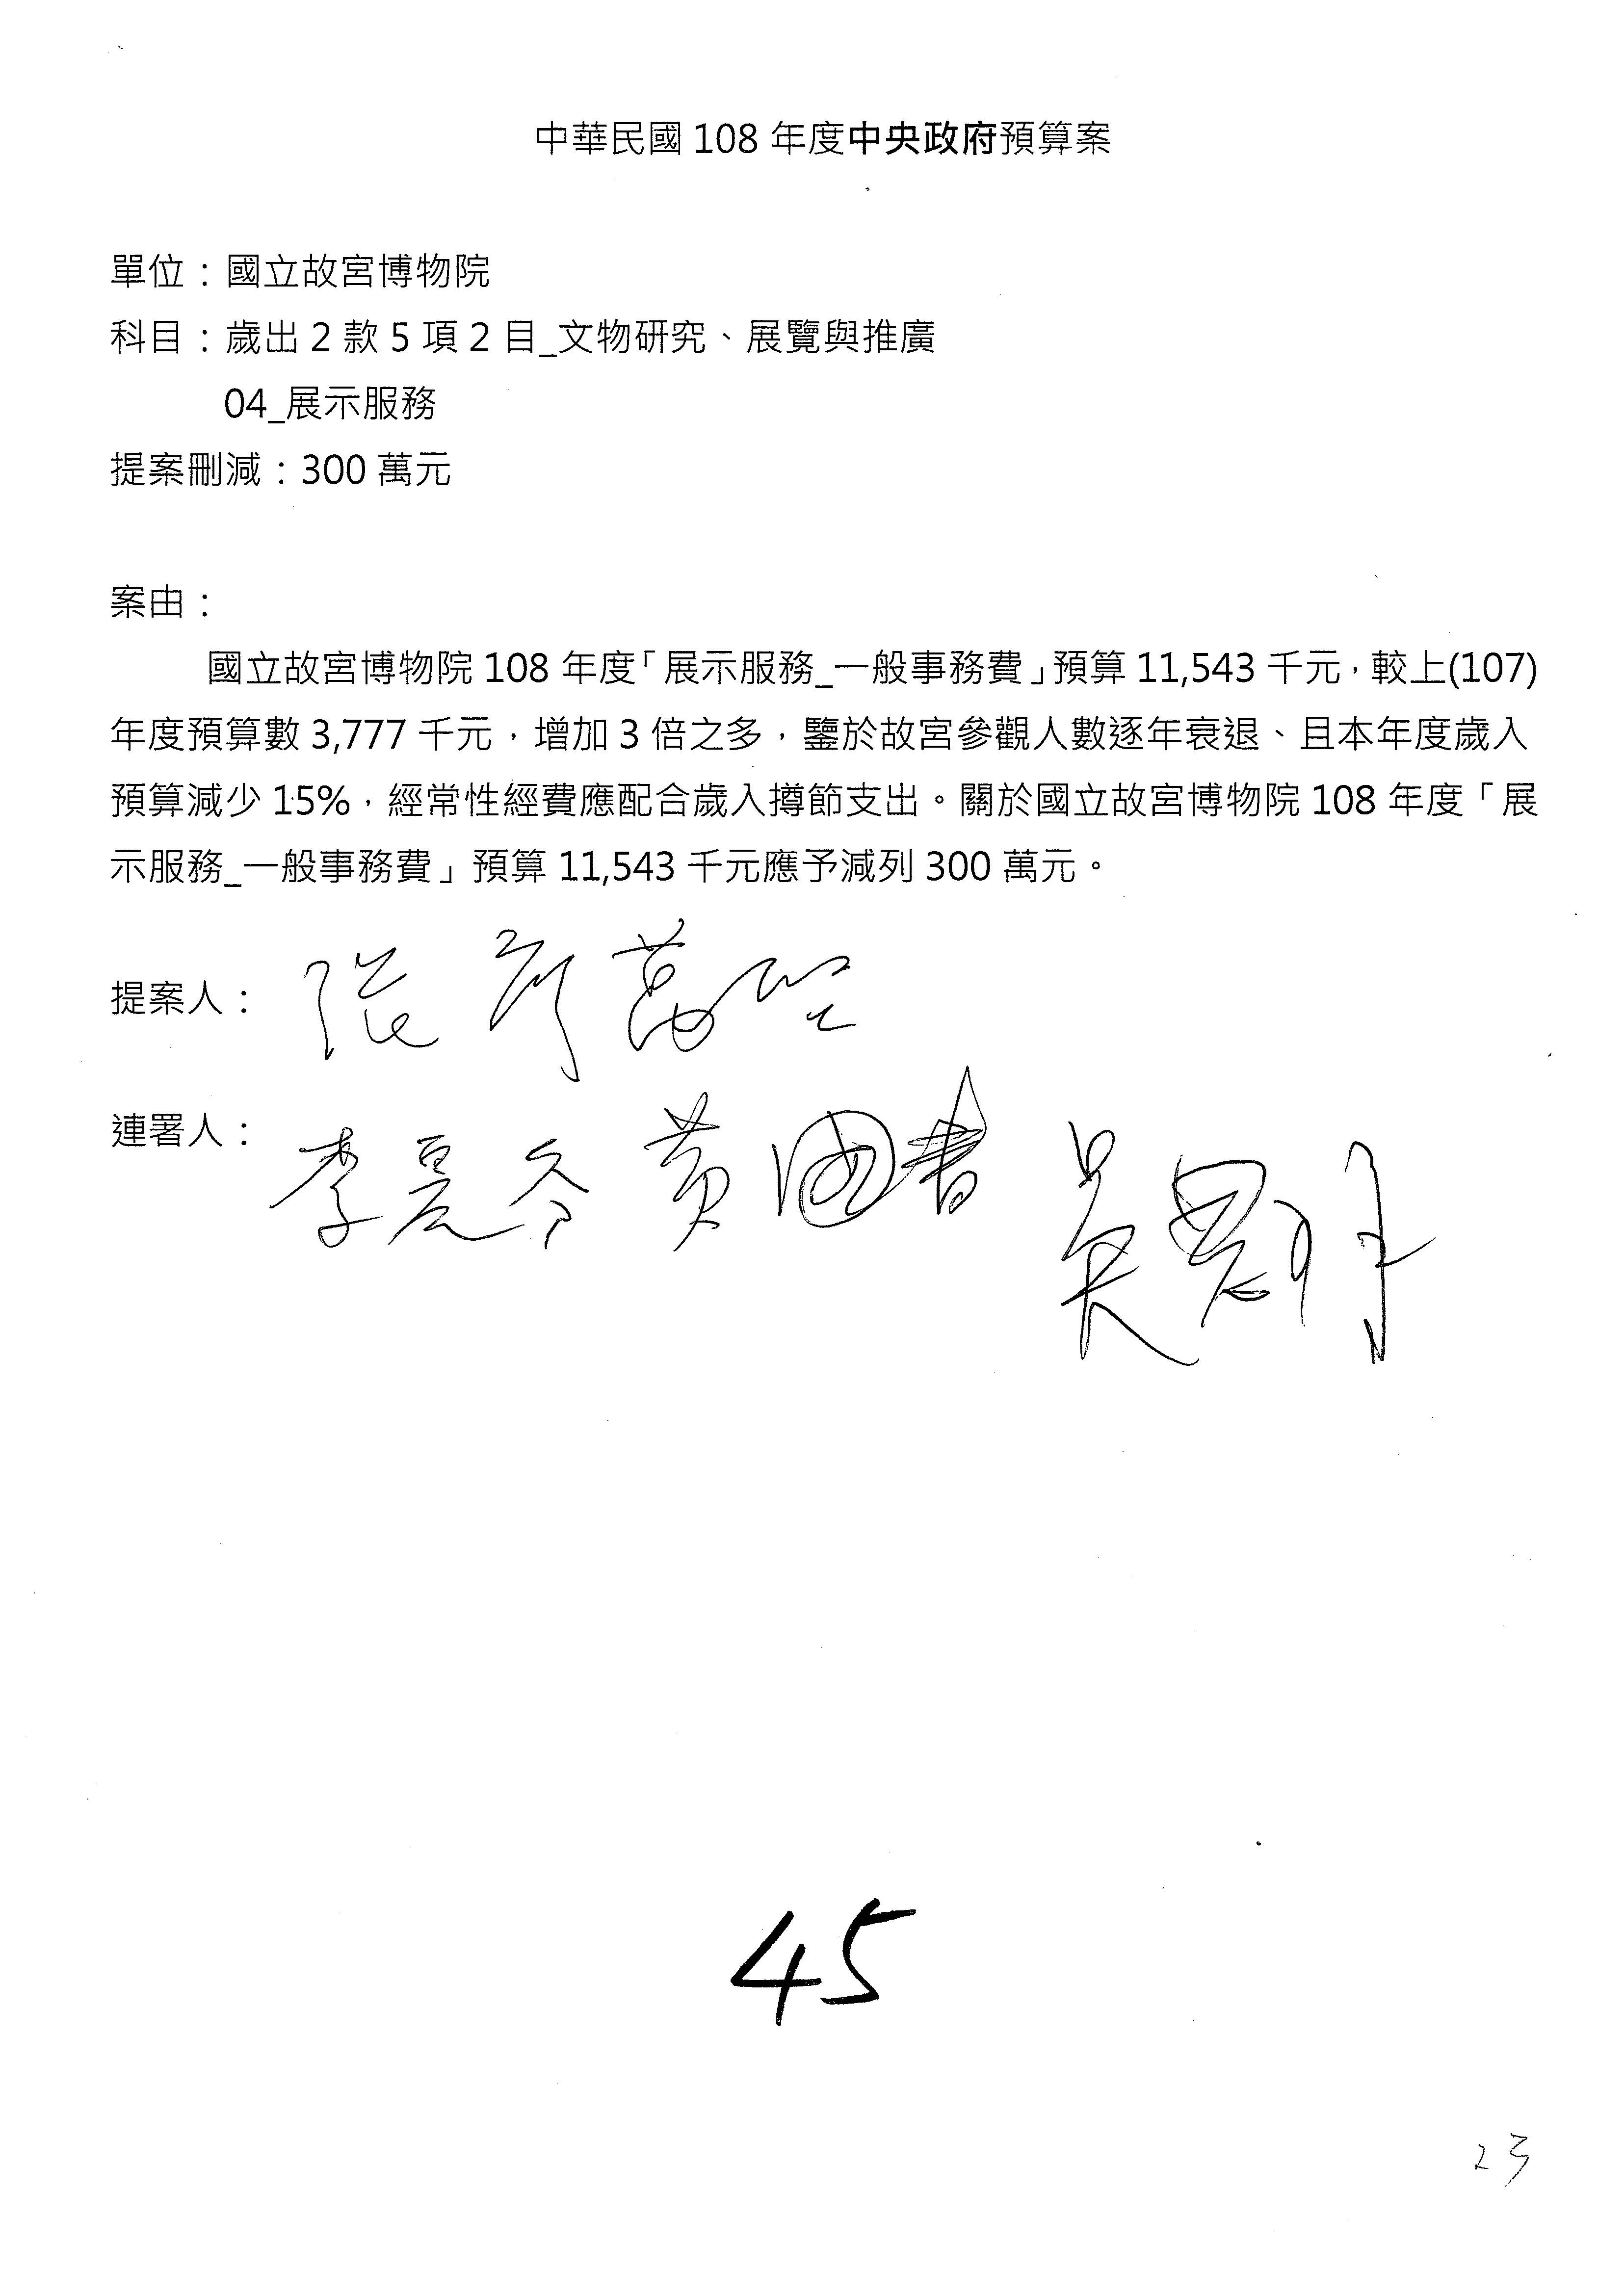 中華民國 108 年度中央政府預算案
單位：國立故宮博物院
科目：歲出 2 款 5 項 2 目_文物研究、展覽與推廣
04_展示服務
提案刪減：300 萬元
案由：
國立故宮博物院 108 年度「展示服務_一般事務費」預算 11,543 千元，較上(107)
年度預算數 3,777 千元，增加 3 倍之多，鑒於故宮參觀人數逐年衰退、且本年度歲入
預算減少 15%，經常性經費應配合歲入撙節支出。關於國立故宮博物院 108 年度「展
示服務_一般事務費」預算 11,543 千元應予減列 300 萬元。
提案人： 張廖萬堅
連署人： 李昆 黃國書 吳思瑤
45
23